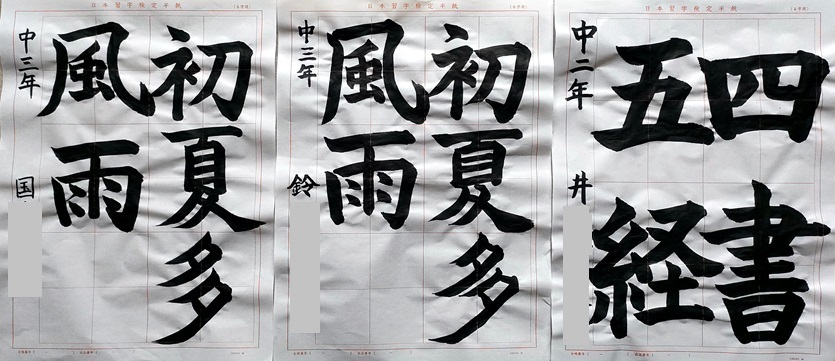 日本習字検定半紙
初夏多
風雨
中三年
国
日本習字検定半紙
初夏多
風雨
中三年
鈴
日本習字検定半紙
四書
五経
中二年
井